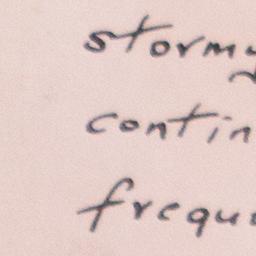 stormy
contin
frequ